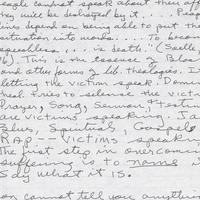 people cannot speak about their aff
they will be destroyed by it.... Peop
depend on being able to put the
situation into words.... To become
speechless... is death." (Soelle
76). This is the essence of Blac
and other forms of lib. theologies. I
letting the victim speak. Demm
heal tries to release the victim
Prayer, Song, Sermon & Testim
are victims speaking. Ja
Blues, Spiritual, Gospels
RAP — Victims speaking
The first step in overcomin
suffering is to name i
Say what it is.
on cannot tell you anything